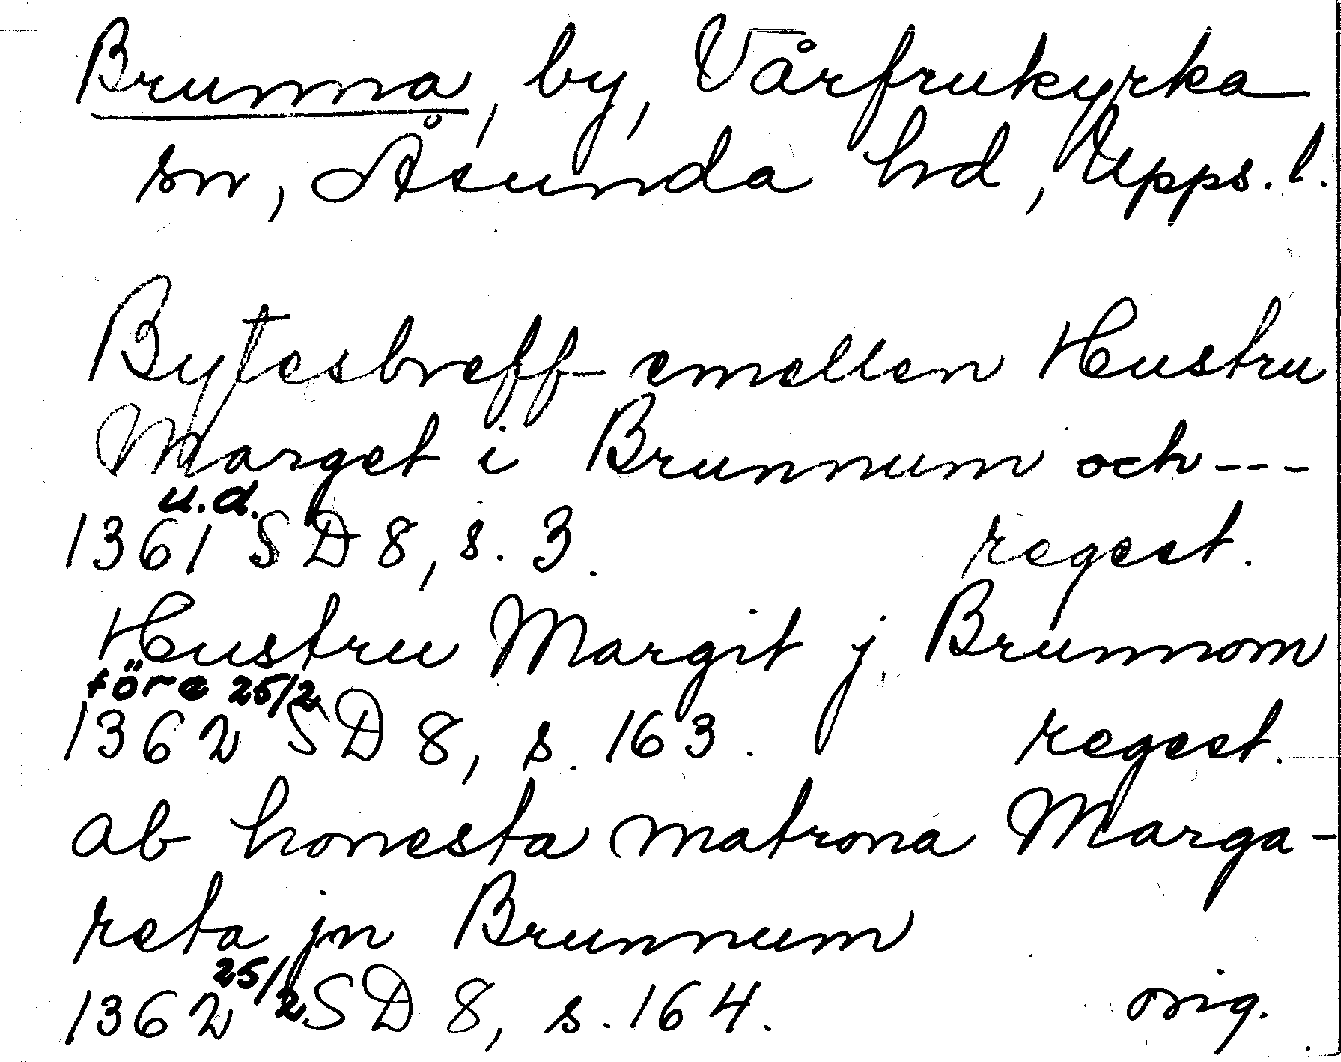 Brunna, by, Vårfrukyrka
sn, Åsunda hd, Upps. l.
Bytesbreff emellen Hustru
Marget i Brunnum och ---
u.d.
1361 SD 8, s. 3. regest.
Hustru Margit j Brunnom
före 25/2
1362 SD 8, s. 163. regest.
ab honesta matrona Marga-
reta jn Brunnum
25/2
1362 SD 8, s. 164. orig.